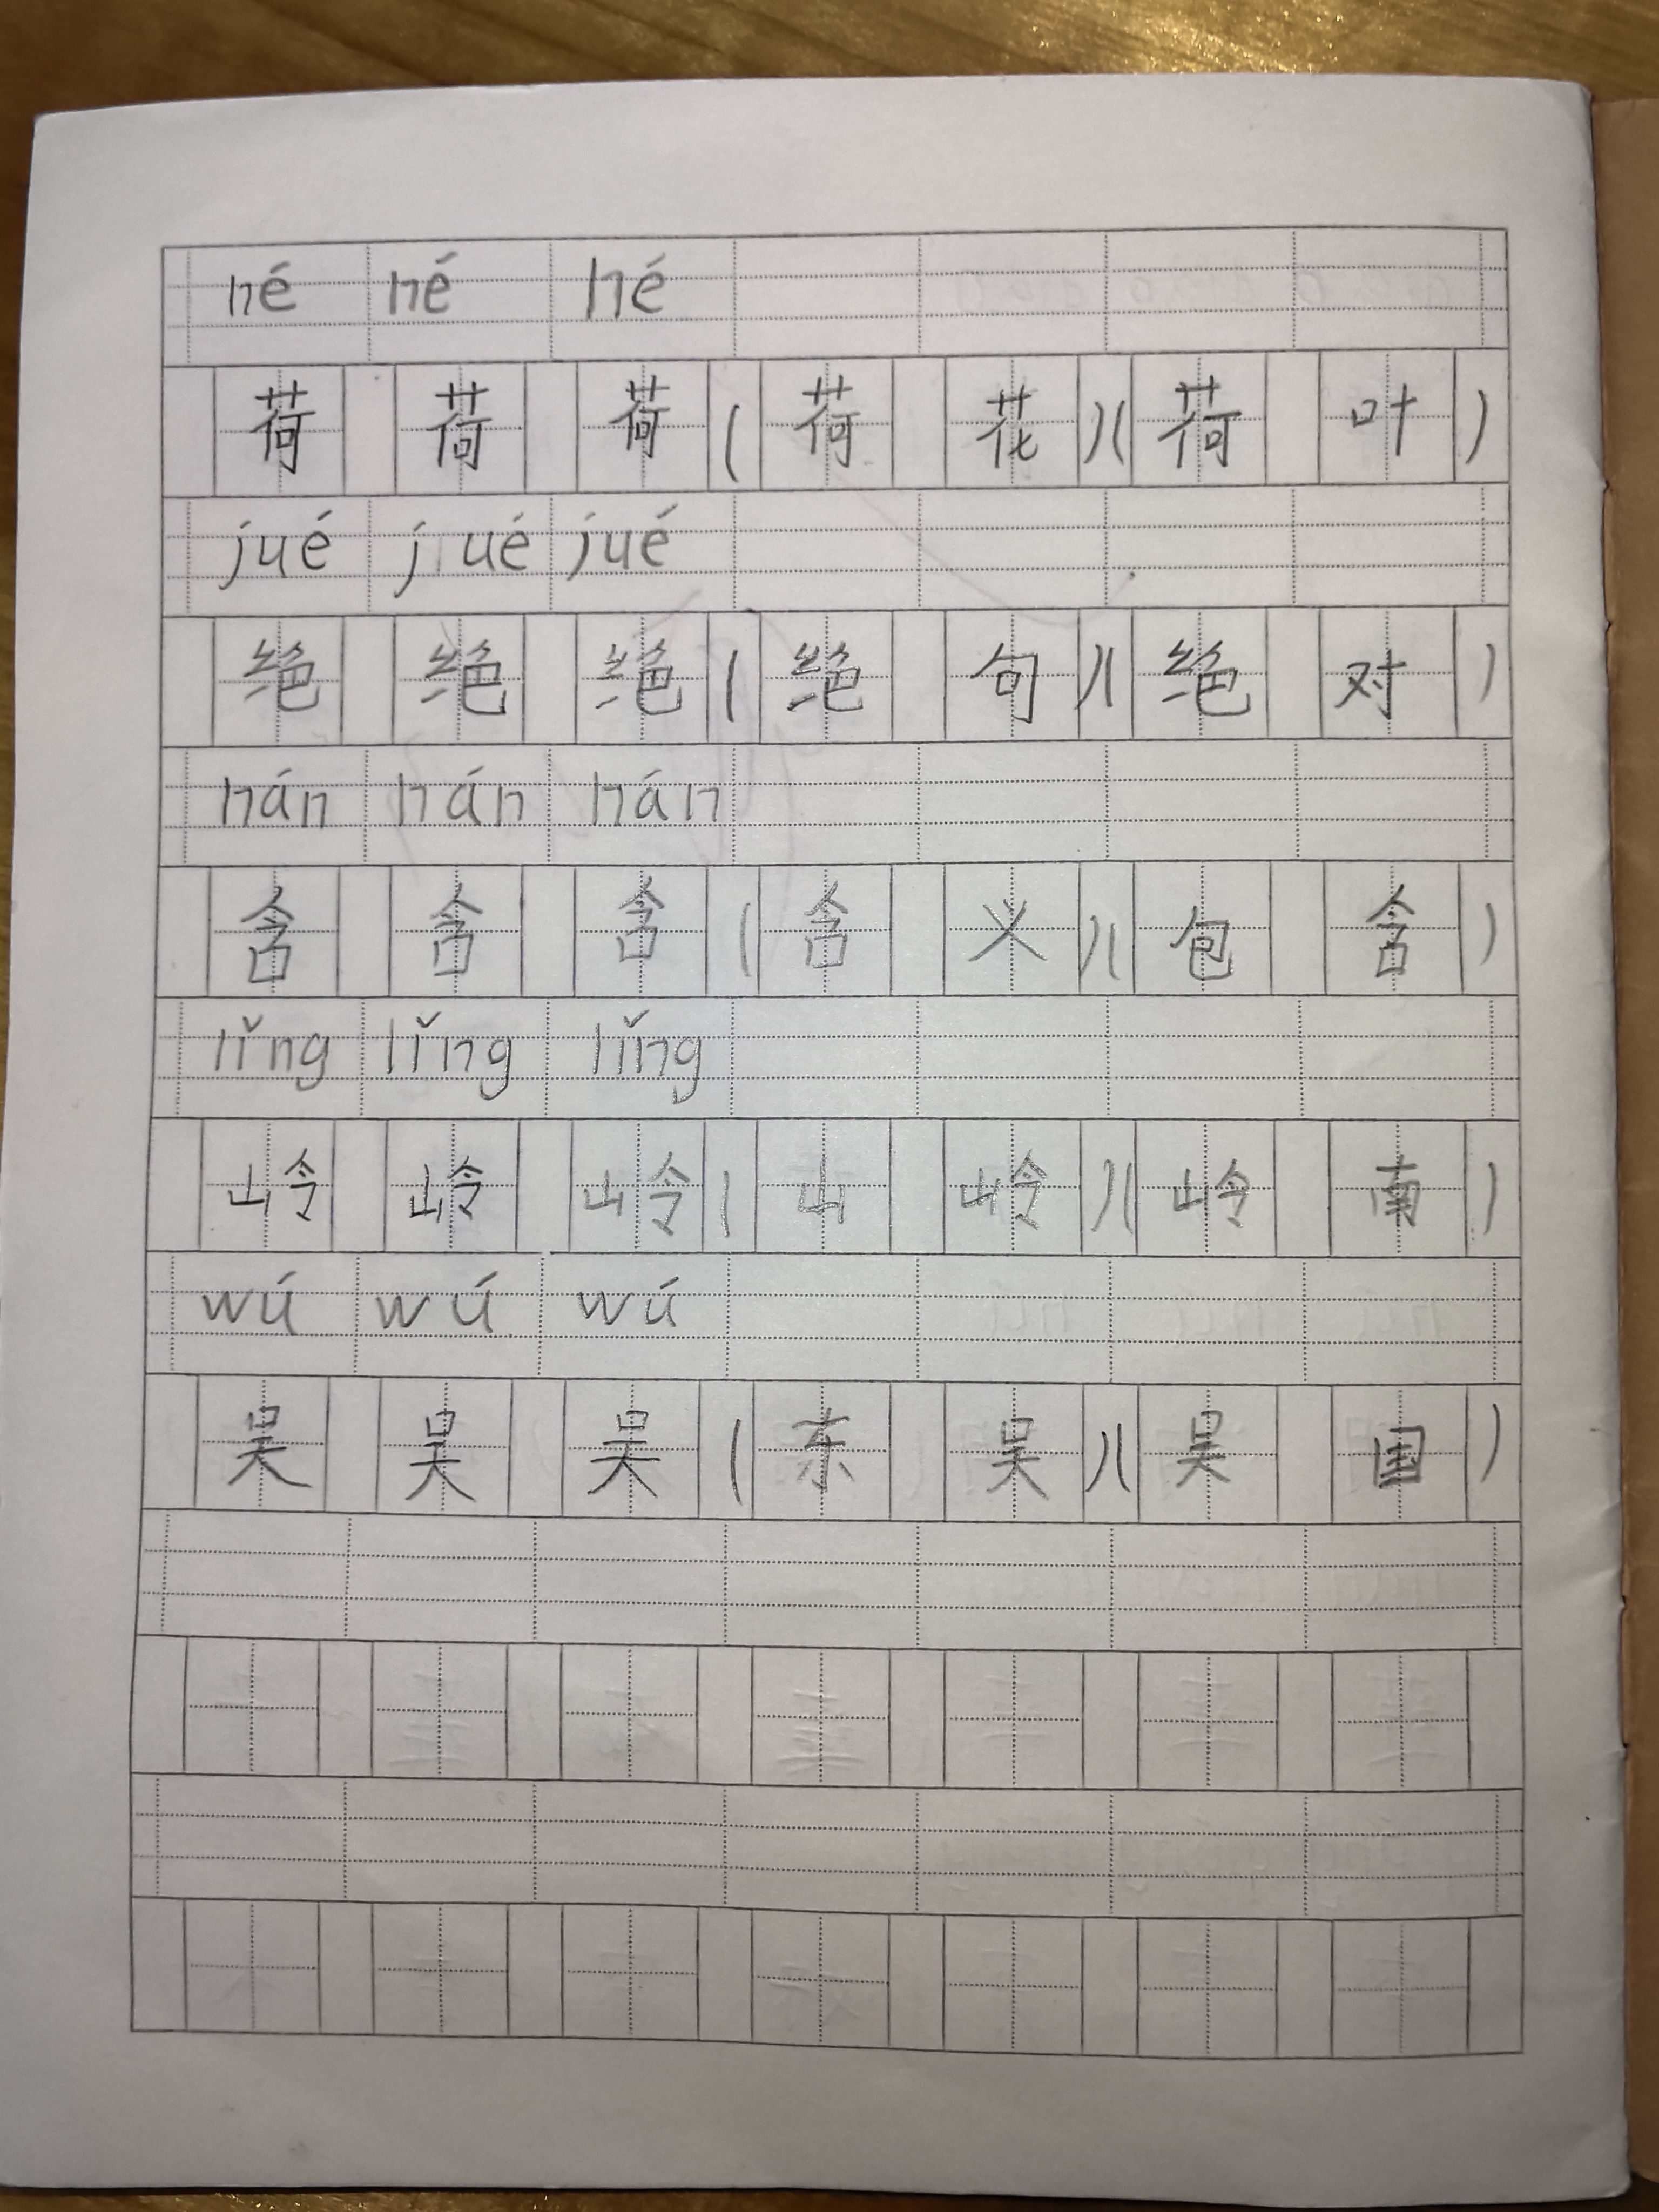 hé hé hé
荷 荷 荷 ( 荷 花 )( 荷 叶 )
jué jué jué
绝 绝 绝 ( 绝 句 )( 绝 对 )
hán hán hán
含 含 含 ( 含 义 )( 包 含 )
lǐng lǐng lǐng
岭 岭 岭 ( 山 岭 )( 岭 南 )
wú wú wú
吴 吴 吴 ( 东 吴 )( 吴 国 )